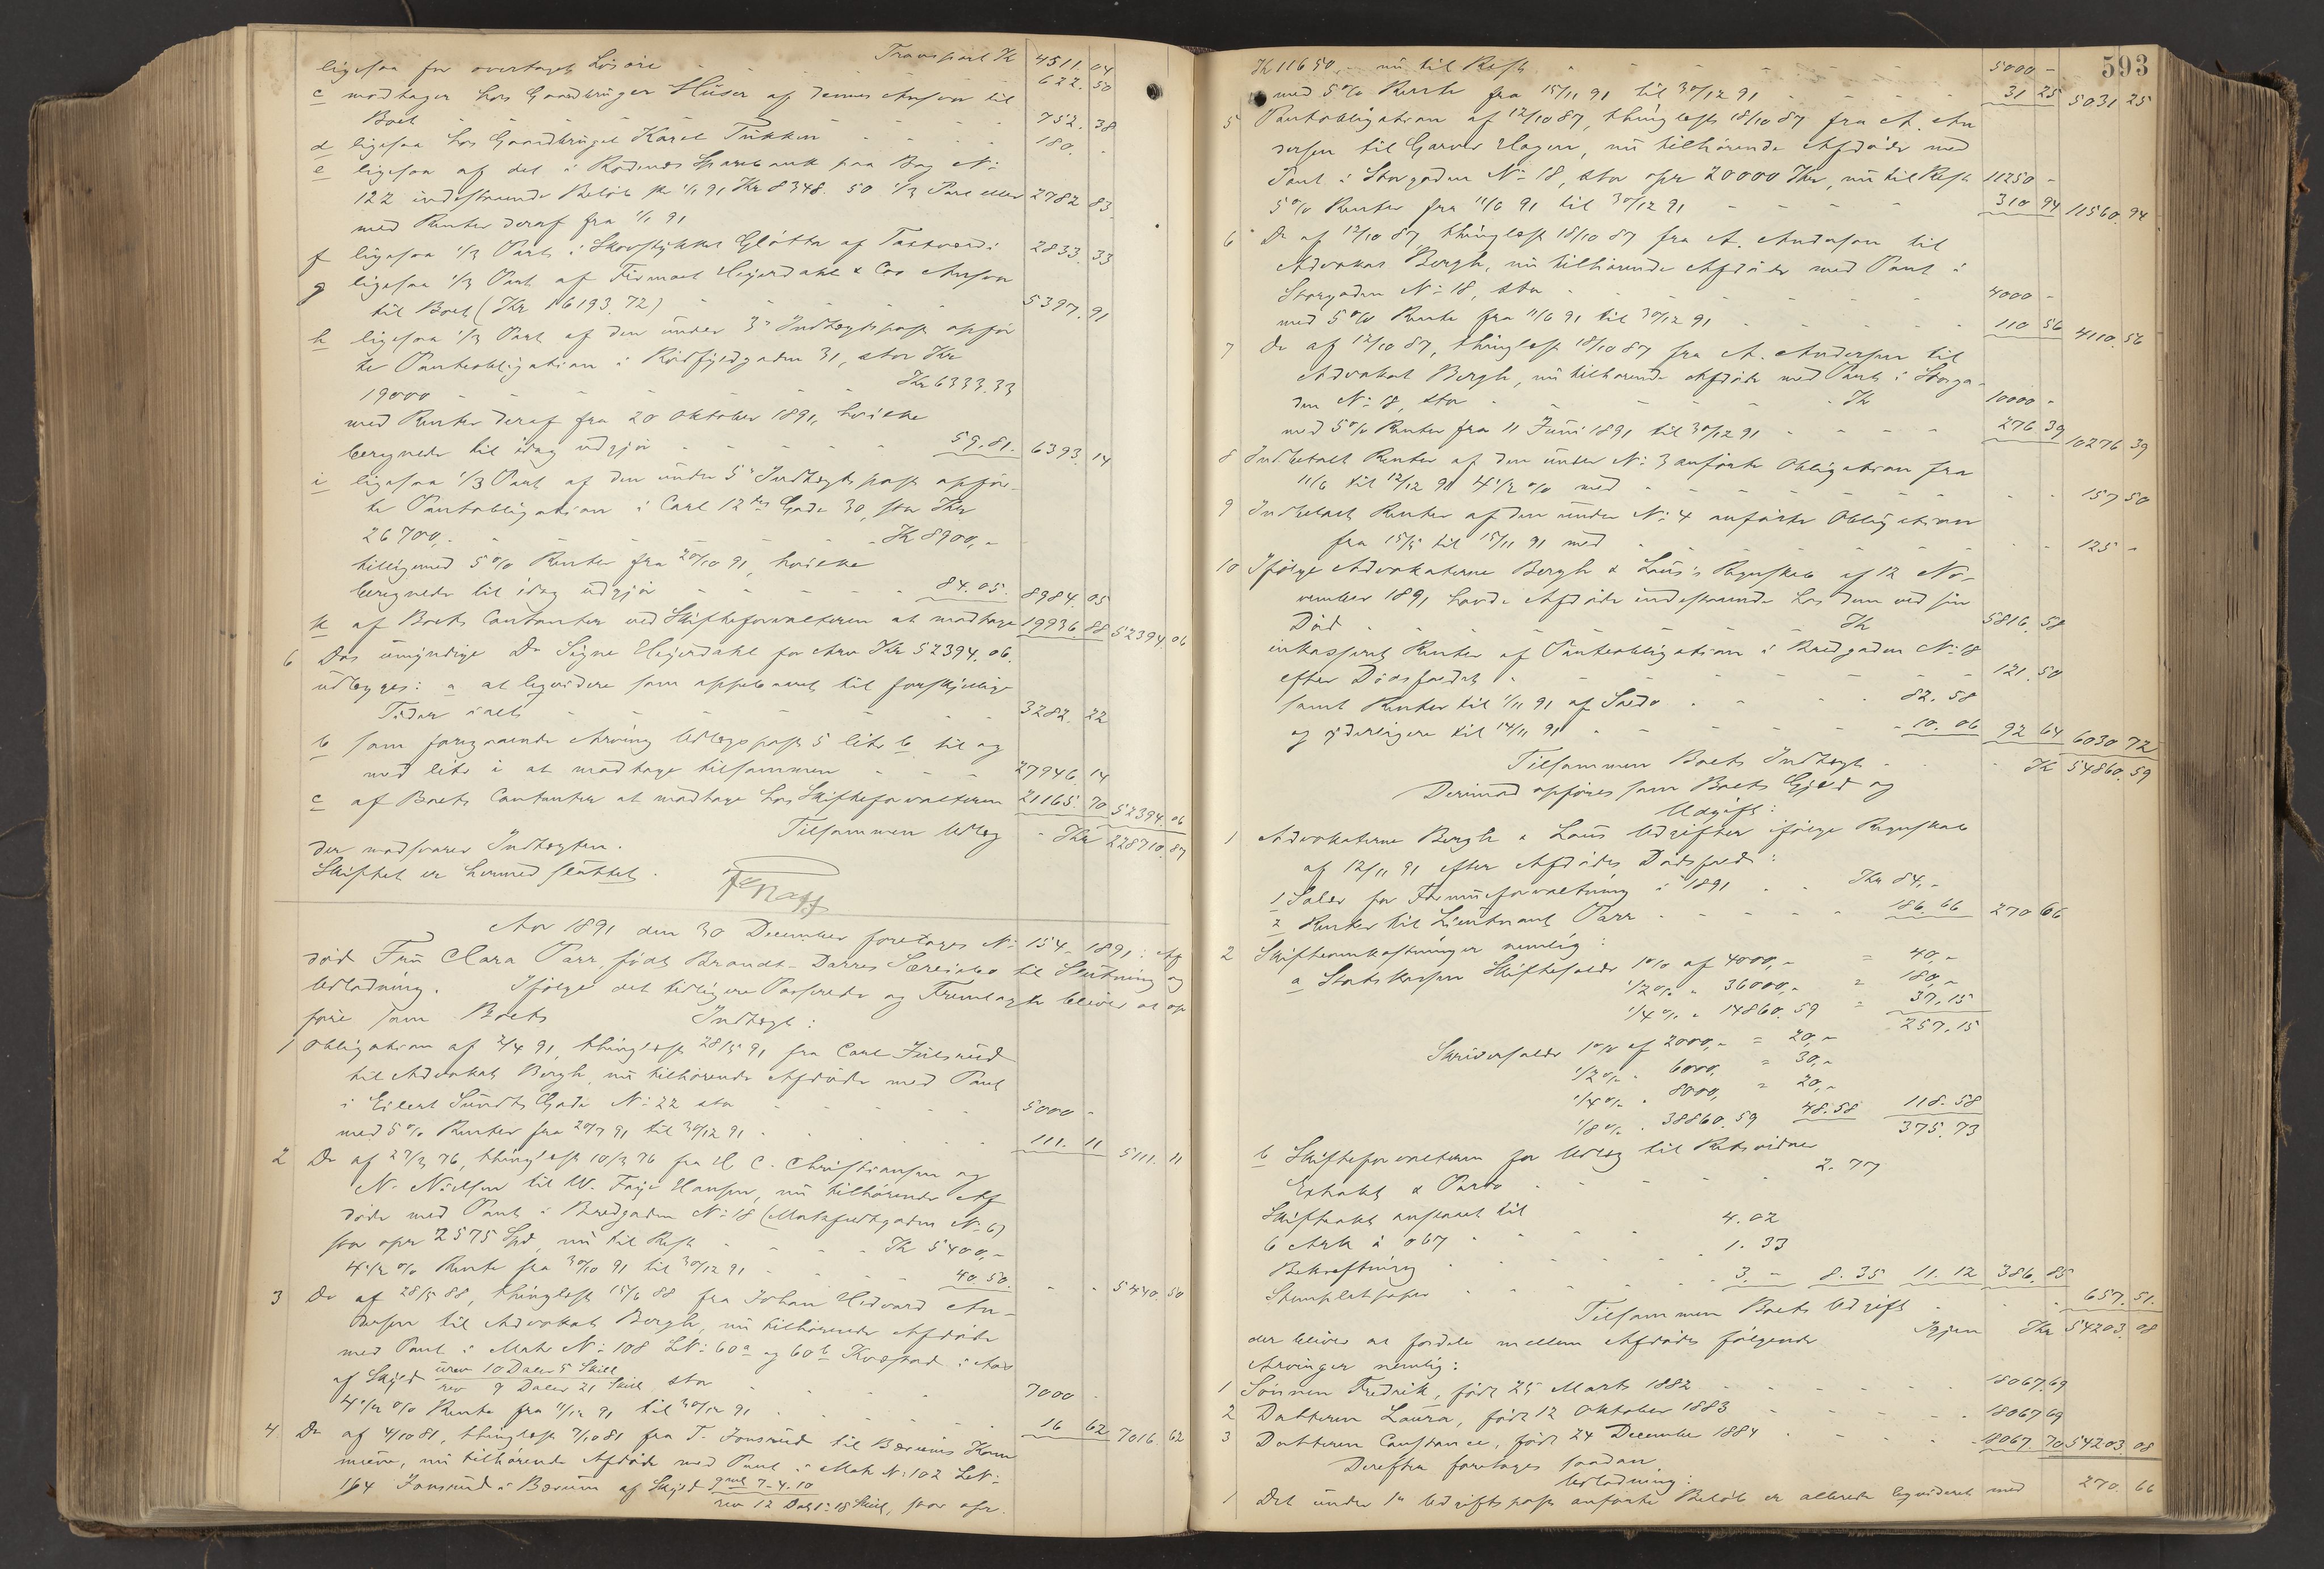 Transport Kr 4511.04
ligesaa for overtaget Løsøre - - - 622.50
c modtager hos Gaardbruger Huser af dennes Ansvar til
Boet - - - 752.38
d ligesaa hos Gaardbruger Karel Tukken - - - 180. -
e ligesaa af det i Rødenes Sparebank paa Bog No
122 indestaaende Beløb pr 1/1 91 Kr 8348.50 1/3 Part eller 2782 83
med Renter deraf fra 1/1 91
f ligesaa 1/3 Part i Skovstykket Glötta af Taxtværdi 2833.33
g ligesaa 1/3 Part af Firmaet Heyerdahl & Co's Ansvar
til Boet (Kr 16193.72) - - - 5397.91
h ligesaa 1/3 Part af den under 3die Indtægtspost opfør
te Panteobligation i Rødfyldgaden 31, stor Kr
19000 - - - Kr 6333.33
med Renter deraf fra 20 Oktober 1891, hvilke
beregnede til idag udgjør - - - 59.81. 6393.14
i ligesaa 1/3 Part af den under 5te Indtægtspost opfør-
te Panteobligation i Carl 12tes Gade 30, stor Kr
26700,- - - - Kr 8900,-
tilligemed 5% Renter fra 20/10 91, hvilke
beregnede til idag udgjør - - - 84.05. 8984.05
k af Boets Contanter ved Skifteforvalteren at modtage 19936.88 52394.06
6 Den umyndige Da Signe Heyerdahl for Arv Kr 52394.06.
udlægges: a at liqvidere som oppebaaret til forskjellige
Tider i alt - - - 3282.22
b som foregaaende Arving Udlægspost 5 litr b til og
med litr i at modtage tilsammen - - - 27946.14
c af Boets Contanter at modtage hos Skifteforvalteren 21165.70 52394.06
Tilsammen Udlæg - Kr 228710.87
der modsvarer Indtægten.
Skiftet er hermed sluttet.
Aar 1891 den 30 December foretages No 154-1891: Af
død Fru Clara Parr, født Brandt-Darres Særeiebo til Slutning og
Udlodning. Ifølge det tidligere Passerede og Fremlagte bliver at op
føre som Boets Indtægt:
1 Obligation af 2/4 91, thinglæst 28/5 91 fra Carl Julsrud
til Advokat Bergh, nu tilhørende Afdøde med Pant
i Eilert Sundts Gade No 22 stor - - - 5000 -
med 5% Renter fra 20/7 91 til 30/12 91 - - - 111.11 5111.11
2 Do af 27/3 76, thinglæst 10/3 76 fra H. C. Christiansen og
N. Nielsen til W. Faye Hansen, nu tilhørende Af
døde med Pant i Bredgaden No 18 (Matzfeldtgaden No 6)
stor opr 2575 Spd, nu til Rest - - - Kr 5400,-
4 1/2 % Rente fra 30/10 91 til 30/12 91 - - - 40.50. - - 5440.50
3 Do af 28/5 88, thinglæst 15/6 88 fra Johan Edvard An-
dersen til Advokat Bergh, nu tilhørende Afdøde
med Pant i Matr No 108 LNo 60a og 60b i Aas
af Skyld urev 10 Daler 5 Skill
rev 9 Daler 21 Skill stor - - - 7000 -
4 1/2 % Rente fra 11/12 91 til 30/12 91 - - - 16 62 7016.62
4 Do af 4/10 81, thinglæst 7/10 81 fra T. Jonsrud til Bærums Kom
mune, nu tilhørende Afdøde med Pant i Matr No 102 LNo
164 Jonsrud i Bærum af Skyld gml 7-4.10
rev 12 Dal 1 18 Skill, stor opr.
593
Kr 11650,- nu til Rest - - - 5000 -
med 5% Rente fra 15/11 91 til 30/12 91 - - - 31 25 5031 25
5 Panteobligation af 12/10 87, thinglæst 18/10 87 fra A. An
dersen til Garver Hagen, nu tilhørende Afdøde med
Pant i Storgaden No 18, stor opr 20000 Kr, nu til Rest 11250 -
5% Renter fra 11/6 91 til 30/12 91 - - - 310 94 11560.94
6 Do af 12/10 87, thinglæst 18/10 87 fra A. Andersen til
Advokat Bergh, nu tilhørende Afdøde med Pant i
Storgaden No 18, stor - - - 4000 -
med 5% Rente fra 11/6 91 til 30/12 91 - - - 110 56 4110.56
7 Do af 12/10 87, thinglæst 18/10 87 fra A. Andersen til
Advokat Bergh, nu tilhørende Afdøde med Pant i Storga-
den No 18, stor - - - Kr 10000 -
med 5% Renter fra 11 Juni 1891 til 30/12 91 - - - 276 39 10276 39
8 Indbetalt Renter af den under No 3 anførte Obligation fra
11/6 til 12/12 91 4 1/2 % med - - - 157 50
9 Indbetalt Renter af den under No 4 anførte Obligation
fra 15/5 til 15/11 91 med - - - 125 -
10 Ifølge Advokaterne Bergh & Laus's Regnskab af 12 No-
vember 1891 havde Afdøde indestaaende hos dem ved sin
Død - - - Kr 5816.58
inkasseret Renter af Panteobligation i Bredgaden No 18
efter Dødsfaldet - - - 121.50
samt Renter til 1/11 91 af Saldo - - - 82.58
og yderligere til 14/11 91 - - - 10.06 92 64 6030 72
Tilsammen Boets Indtægt - - - Kr 54860.59
Derimod opføres som Boets Gjæld og
Udgift:
1 Advokaterne Bergh & Laus Udgifter ifølge Regnskab
af 12/11 91 efter Afdødes Dødsfald:
1 Salær for Formueforvaltning i 1891 - - Kr 84,-
2 Renter til Lieutnant Parr - - - 186.66 270 66
2 Skifteomkostninger nemlig:
a Statskassen Skiftesalær 1% af 4000,- = 40,-
1/2 % " 36000,- = 180,-
1/4 % " 14860.59 = 37.15
257.15
Skriversalær 1% af 2000,- = 20,-
1/2 % " 6000, = 30,-
1/4 % " 8000, = 20,-
1/8 % " 38860.59 48.58 118.58
375.73
b Skifteforvalteren for Udlæg til Retsvidner
Extrakt & Porto - - - 2.77
Skifteakt anslaaet til
6 Ark à 067 - - - 4.02
Bekræftning - - - 1.33
Stemplet papir - - - 3.- 8.35 11.12 386.85
Tilsammen Boets Udgift - - - 657.51.
Igjen Kr 54203.08
der bliver at fordele mellem Afdødes følgende
Arvinger nemlig:
1 Sønnen Fredrik, født 25 Marts 1882 - - - 18067.69
2 Datteren Laura, født 12 Oktober 1883 - - - 18067 69
3 Datteren Constance, født 24 December 1884 - - - 18067.70 54203.08
Derefter foretages saadan
Udlodning:
1 Det under 1ste Udgiftspost anførte Beløb er allerede liqvideret med 270.66